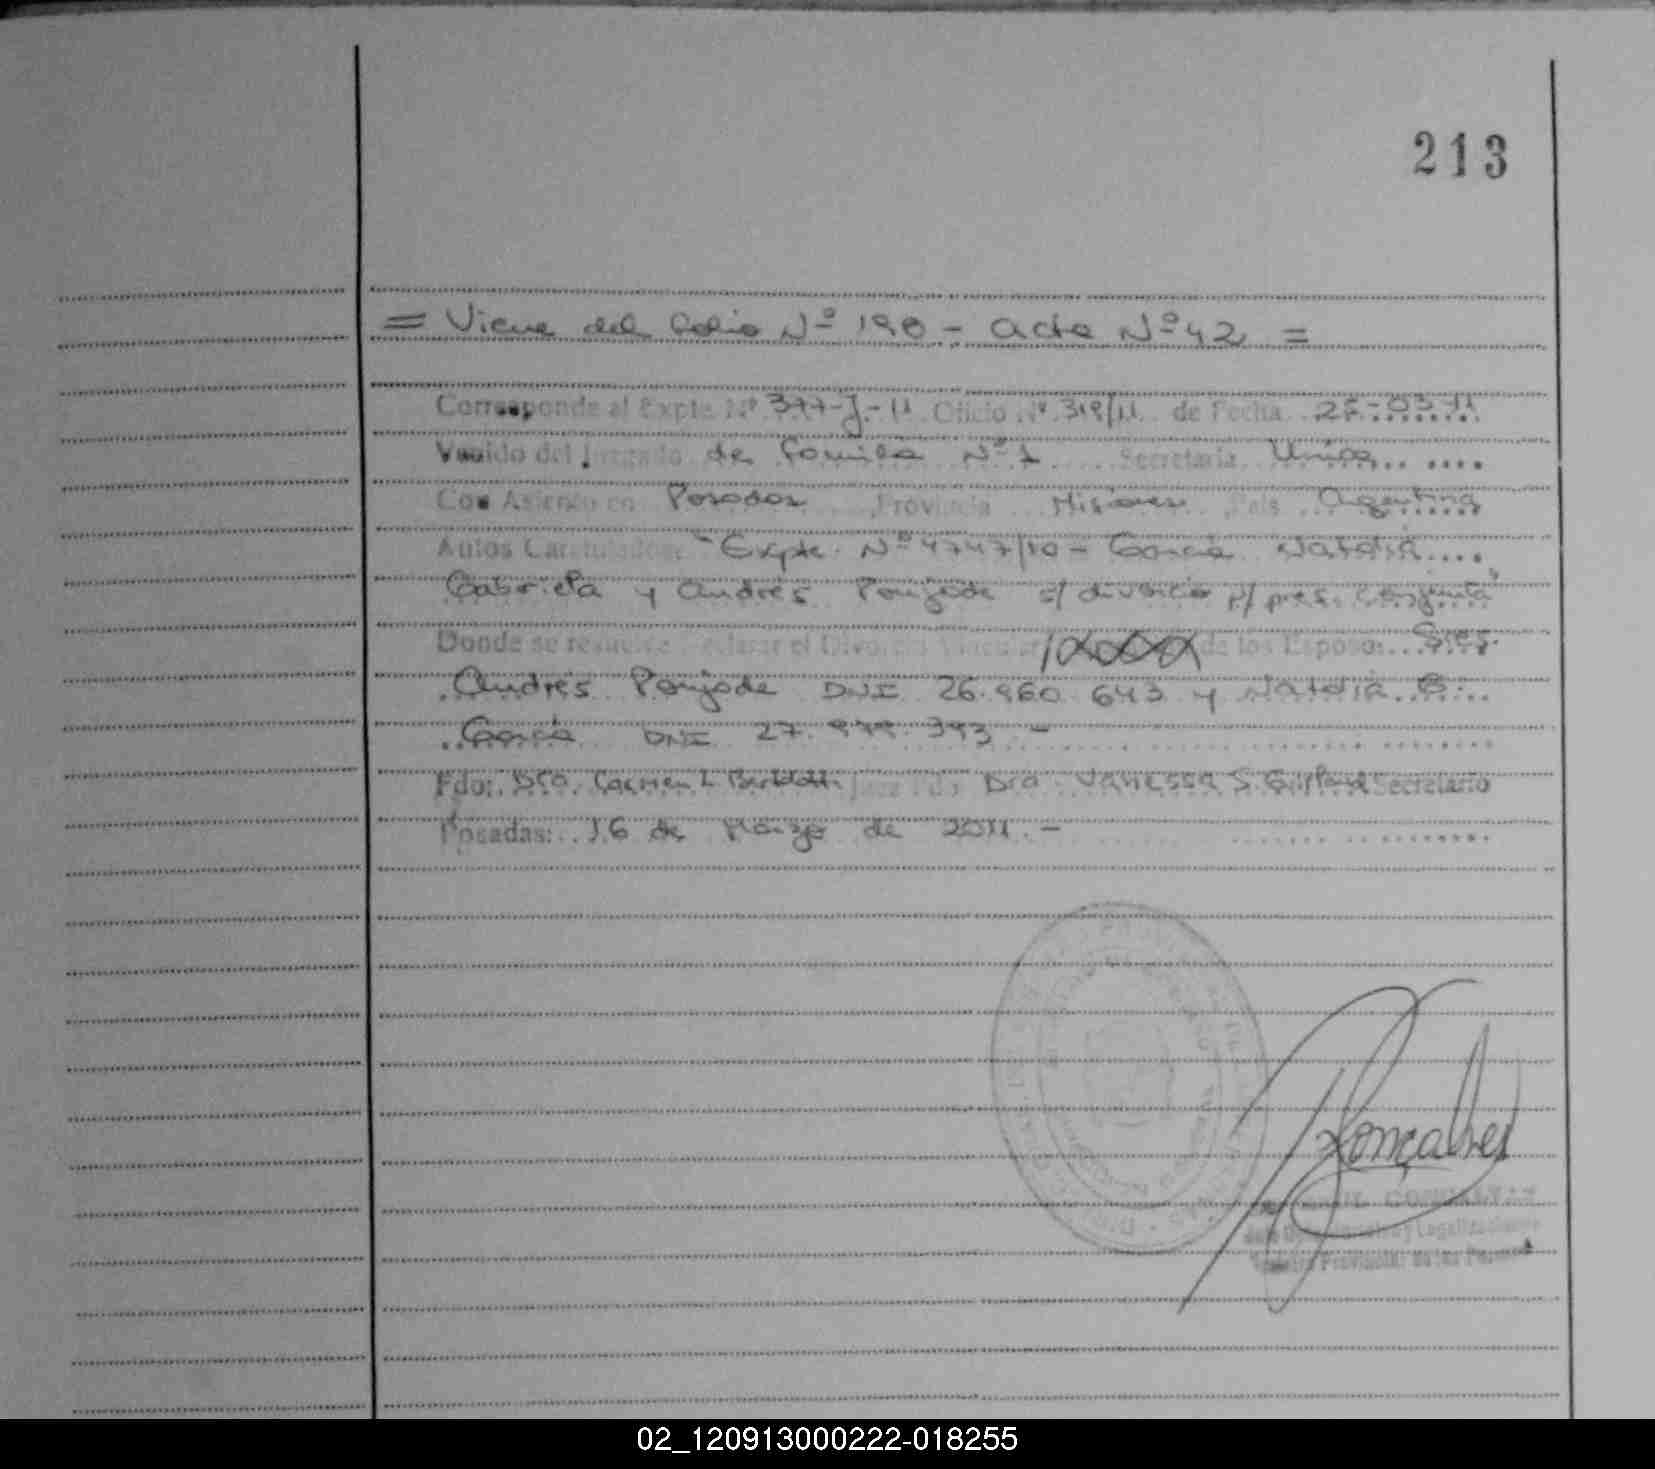 213
= Viene del folio Nº 190 - acta Nº 42 =
Corresponde al Expte. Nº 377-J-11 Oficio Nº 319/11 de Fecha 25-03-11
Venido del Juzgado de Familia Nº 1 Secretaría Única
Con Asiento en Posadas Provincia Misiones País Argentina
Autos Caratulados: "Expte. Nº 4747/10 - García Natalia
Gabriela y Andrés s/ divorcio p/ pres. conjunta"
Donde se resuelve declarar el Divorcio Vincular de los Esposos: Sres.
Andrés DNI 26.960.643 y Natalia G.
García DNI 27.979.393 -
Fdo: Dra. Carmen L. Juez Fdo Dra. Vanessa S. Secretario
Posadas: 16 de Marzo de 2011.-
Gonçalves
y Legalizaciones
Registro Provincial de las Personas
02_120913000222-018255